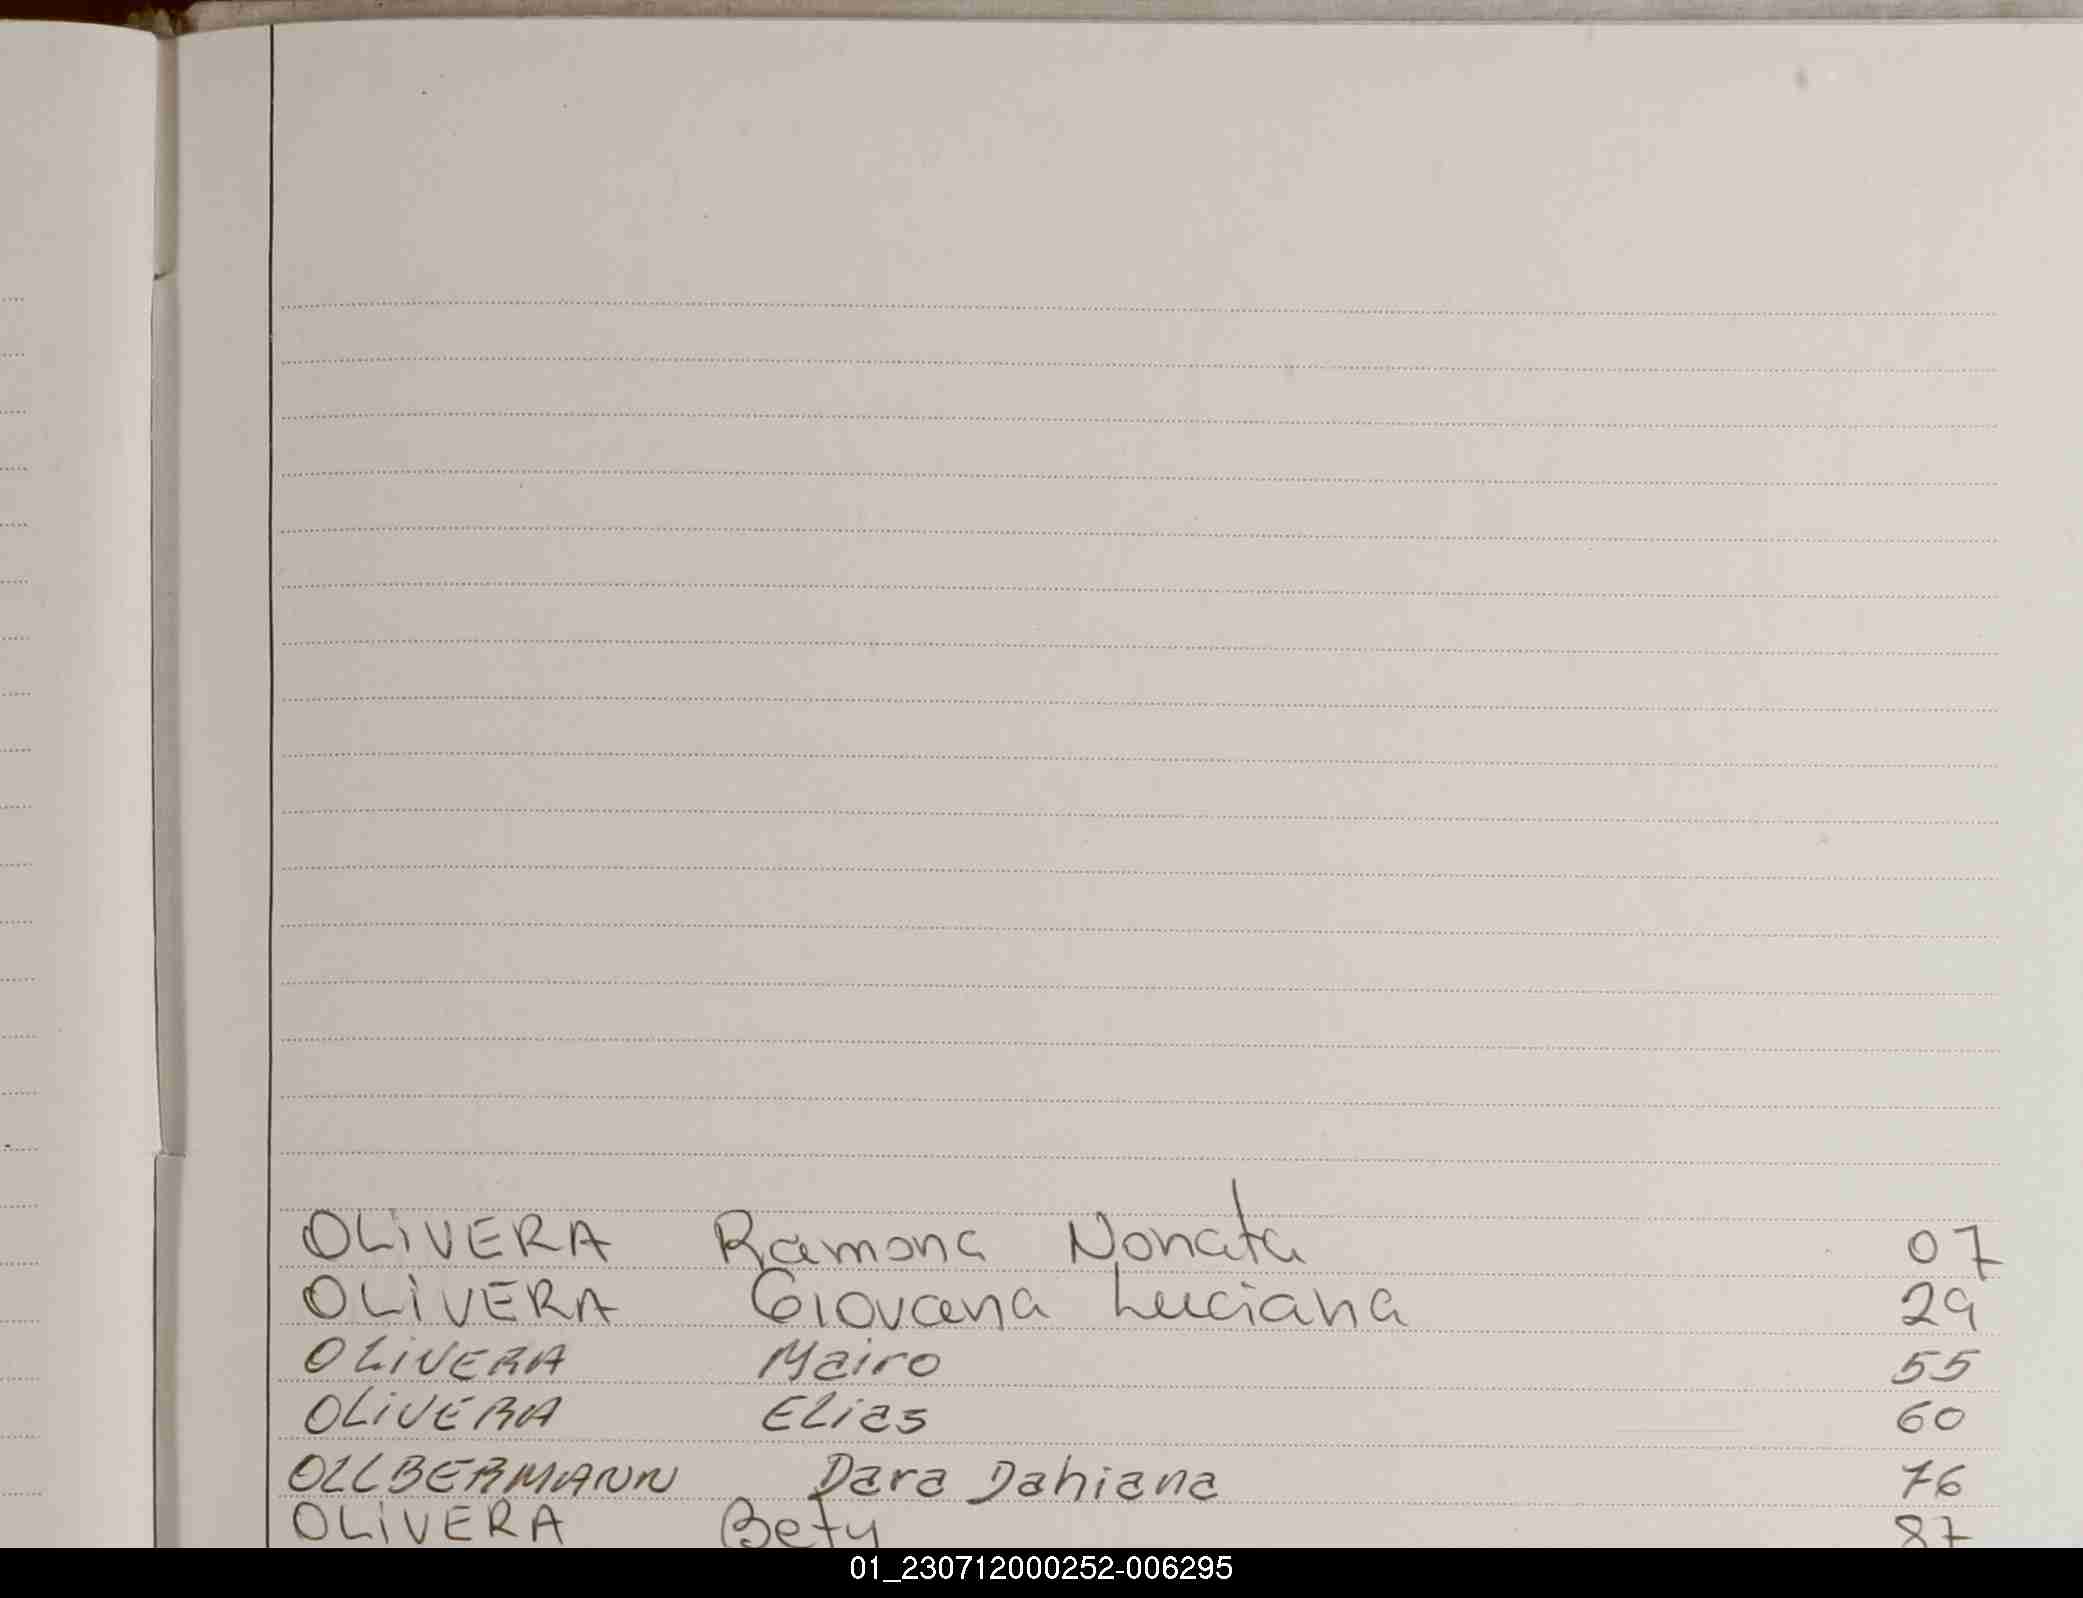 OLIVERA Ramona Nonata 07
OLIVERA Giovana Luciana 29
OLIVERA Mairo 55
OLIVERA Elias 60
OLLBERMANN Dara Dahiana 76
OLIVERA Bety 87
01_230712000252-006295